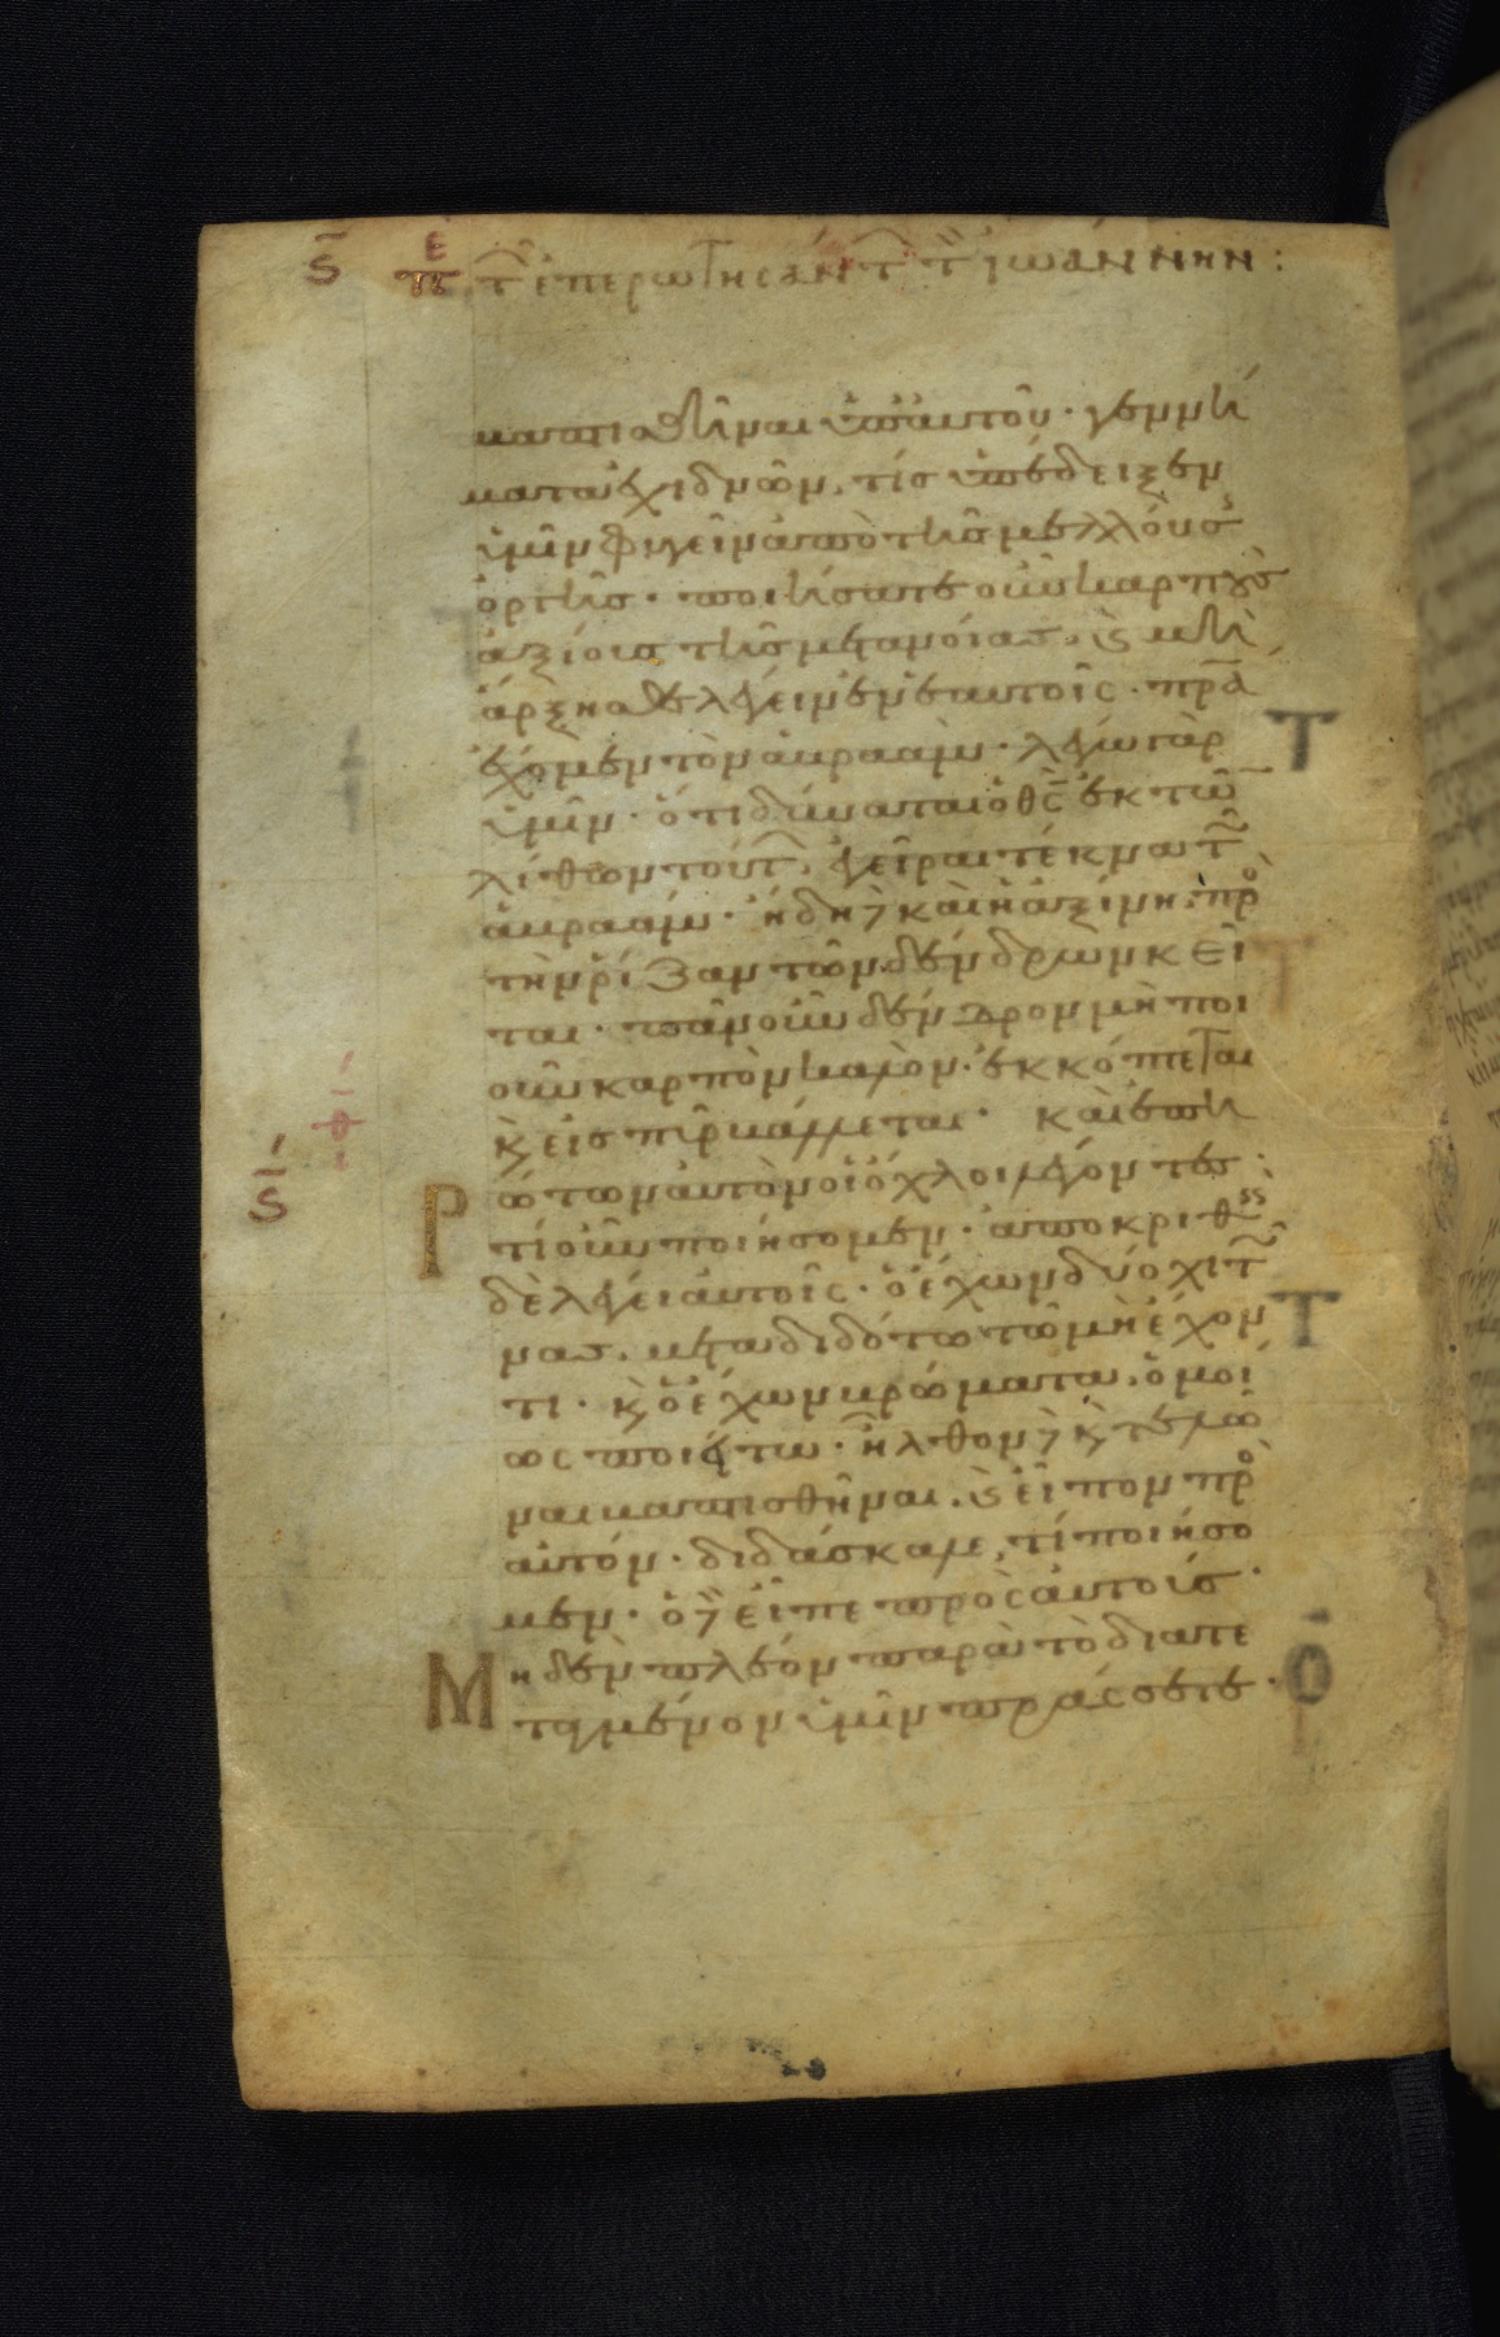 ϛ̄ πε τ̑ ἐπερωτησάντ τ̑ ἰωάννην:
βαπτισθῆναι ὑπ' αὐτοῦ· γεννή
ματα ἐχιδνῶν, τίς ὑπέδειξεν
ὑμῖν φυγεῖν ἀπὸ τῆς μελλούσ
ὀργῆς· ποιήσατε οὖν καρποὺς
ἀξίους τῆς μετανοίας, ϗ μὴ
ἄρξησθε λέγειν ἐν ἑαυτοῖς· πρ̅α
ἔχομεν τὸν ἀβραάμ· λέγω γὰρ
ὑμῖν· ὅτι δύναται ὁ θ̅ς̅ ἐκ τῶ̅
λίθων τούτ, ἐγεῖραι τέκνα τ
ἀβραάμ· ἤδη δὲ καὶ ἡ ἀξίνη πρὸ
τὴν ῥίζαν τῶν δένδρων κεῖ
ται· πᾶν οὖν δένδρον μὴ ποι
οῦν καρπὸν καλὸν· ἐκκόπτεται
ϗ εἰς πῦρ βάλλεται· καὶ ἐπη
ϛ̄ Ρώτων αὐτὸν οἱ ὄχλοι λέγοντες·
τί οὖν ποιήσομεν· ἀποκριθεὶς
δὲ λέγει αὐτοῖς· ὁ ἔχων δύο χιτ
νας, μεταδιδότω τῶ μὴ ἔχον
τι· ϗ ὁ ἔχων βρώματα, ὁμοί
ως ποιείτω· ἦλθον δὲ ϗ τελῶ
ναι βαπτισθῆναι, ϗ εἶπον πρὸ
αὐτόν· διδάσκαλε, τί ποιήσο
μεν· ὁ δὲ εἶπε πρὸς αὐτούς·
Μηδὲν πλέον παρὰ τὸ διατε
ταγμένον ὑμῖν πράσσετε·